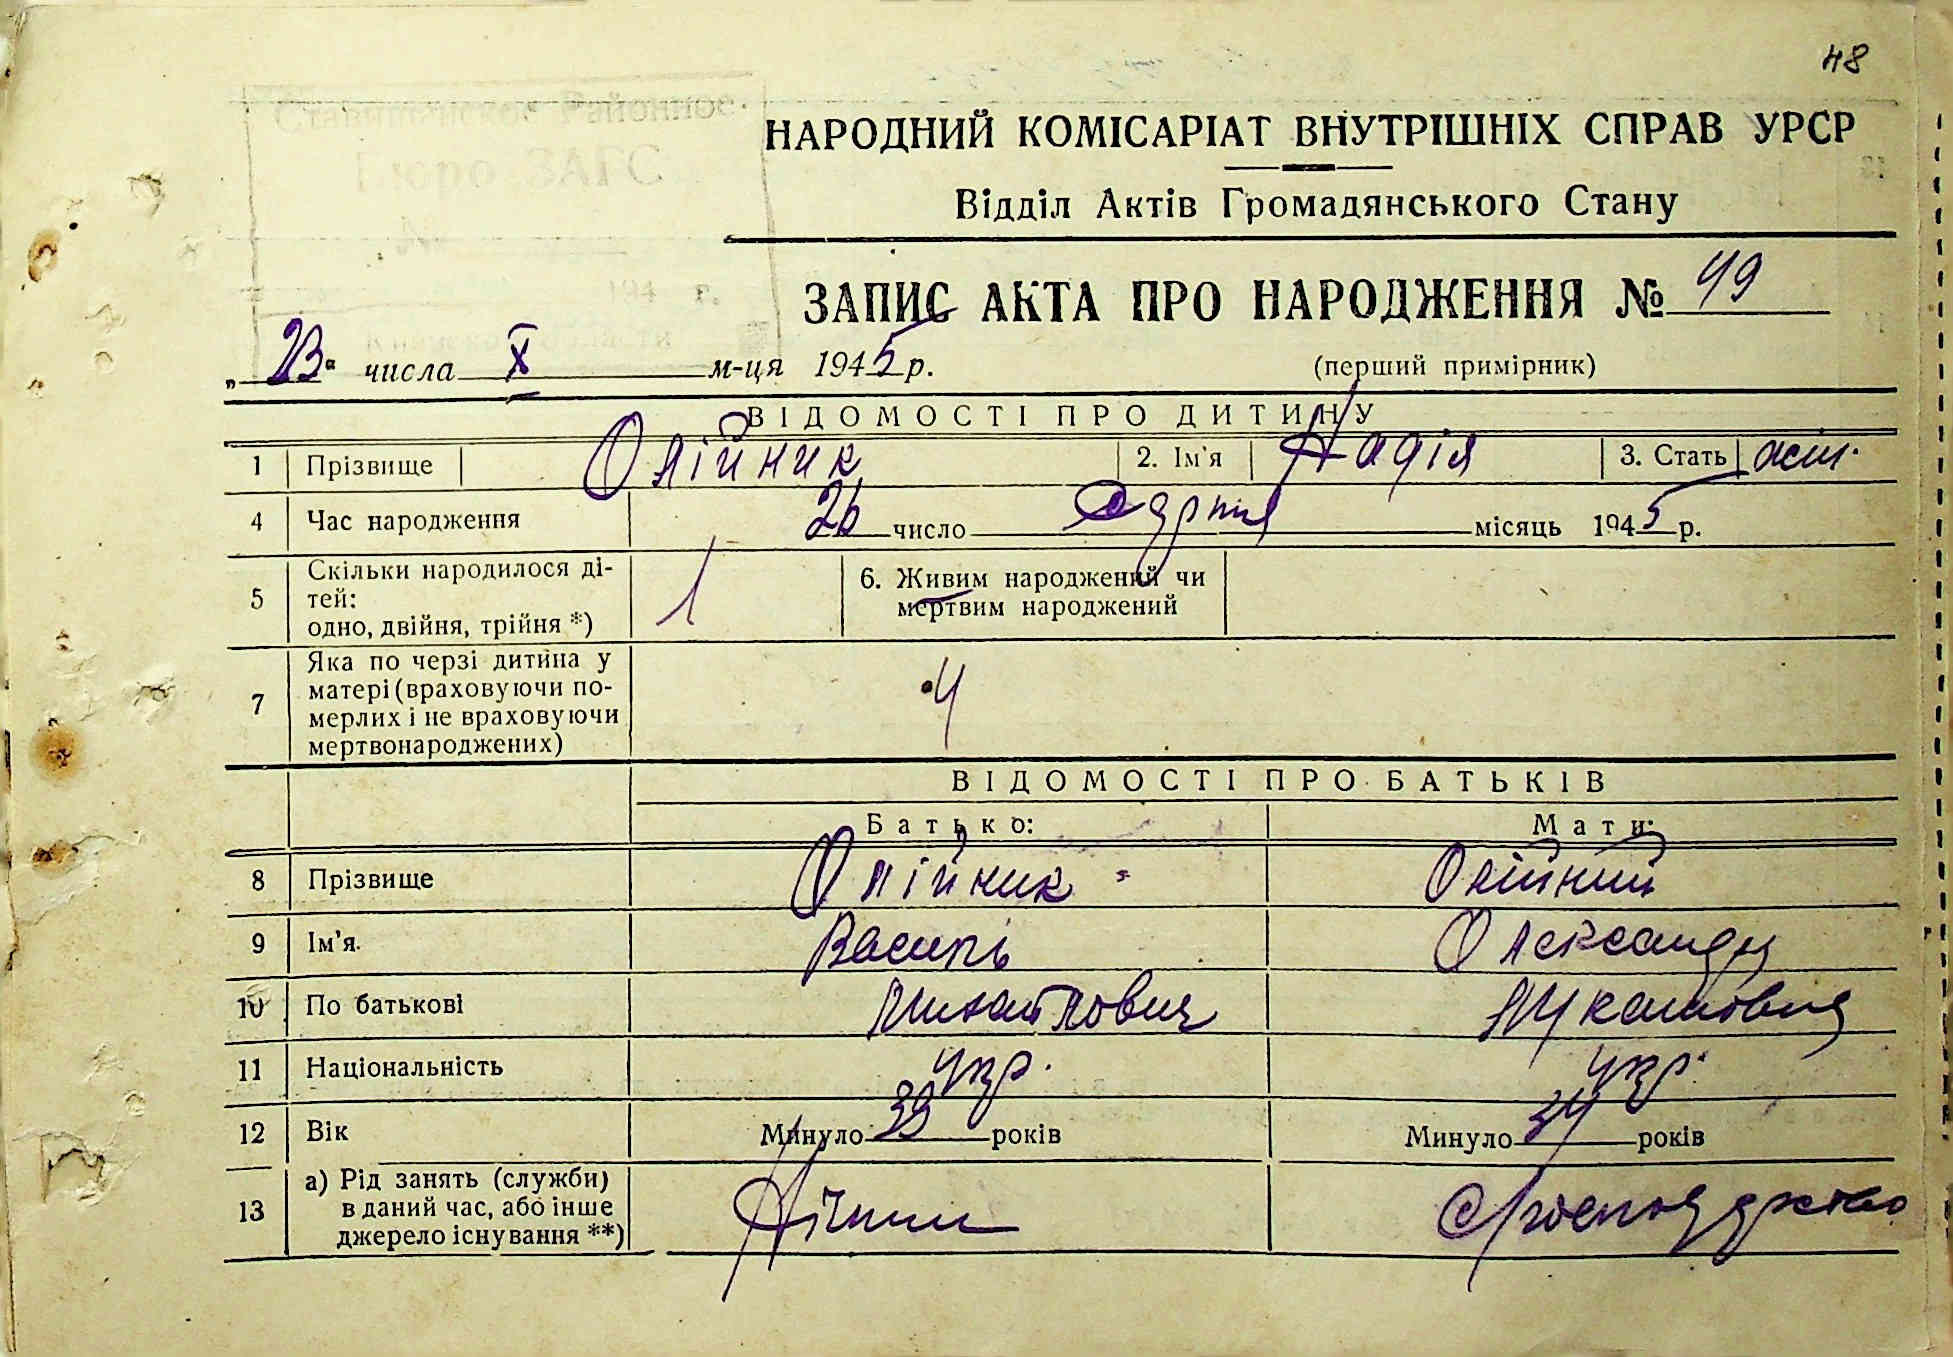 48
Ставищенское Районное
Бюро ЗАГС
№
194 г.
НАРОДНИЙ КОМІСАРІАТ ВНУТРІШНІХ СПРАВ УРСР
Відділ Актів Громадянського Стану
ЗАПИС АКТА ПРО НАРОДЖЕННЯ № 49
„23“ числа X м-ця 1945 р.
(перший примірник)
ВІДОМОСТІ ПРО ДИТИНУ
1 Прізвище Олійник 2. Ім'я Надія 3. Стать жін.
4 Час народження 26 число Серпня місяць 1945 р.
5 Скільки народилося ді-
тей:
одно, двійня, трійня *) 1
6. Живим народжений чи
мертвим народжений
7 Яка по черзі дитина у
матері (враховуючи по-
мерлих і не враховуючи
мертвонароджених) 4
ВІДОМОСТІ ПРО БАТЬКІВ
Батько: Мати:
8 Прізвище Олійник Олійник
9 Ім'я. Василь Олександра
10 По батькові Михайлович
11 Національність укр. укр.
12 Вік Минуло 39 років Минуло 34 років
13 а) Рід занять (служби)
в даний час, або інше
джерело існування **)